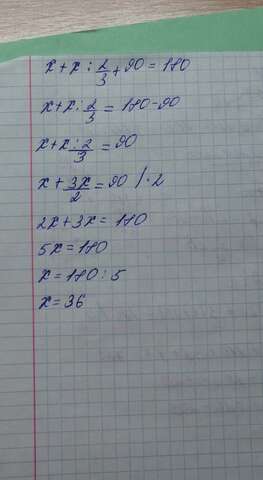 x + x : 2/3 + 90 = 180
x + x : 2/3 = 180 - 90
x + x : 2/3 = 90
x + 3x/2 = 90 / · 2
2x + 3x = 180
5x = 180
x = 180 : 5
x = 36